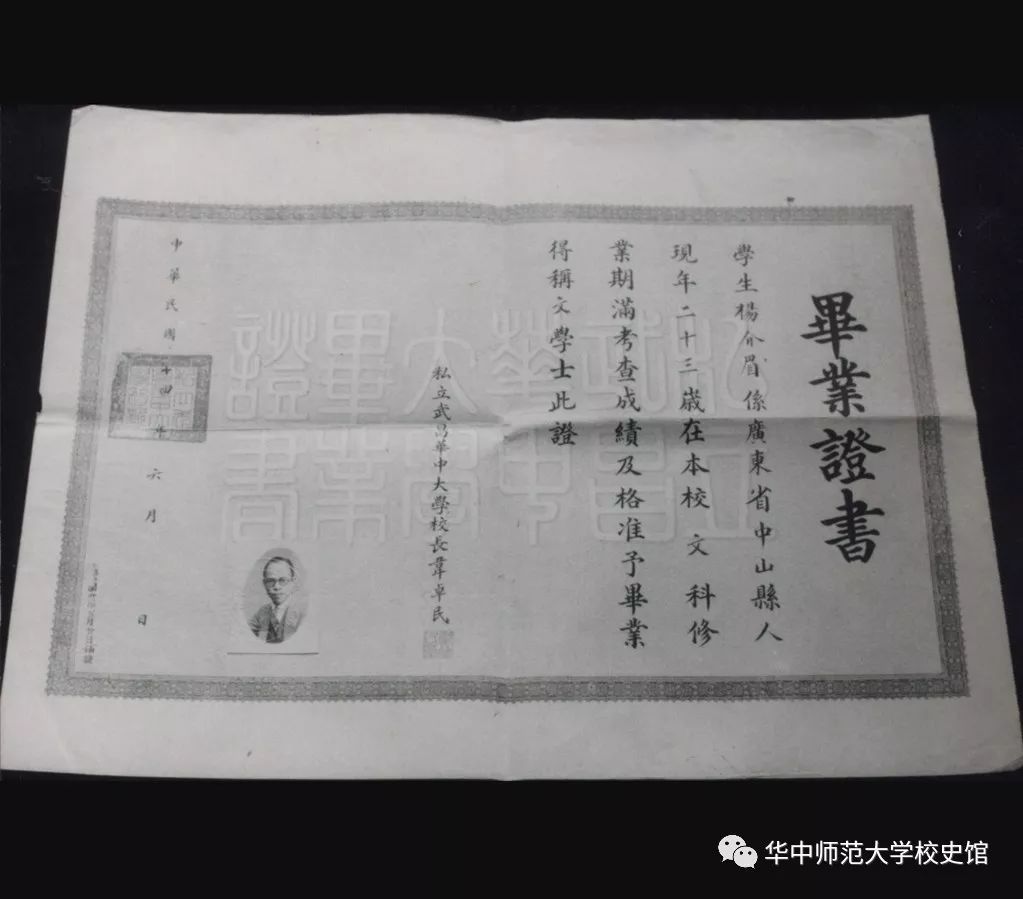 畢業證書
學生楊介眉係廣東省中山縣人
現年二十三歲在本校文科修
業期滿考查成績及格准予畢業
得稱文學士此證
私立武昌華中大學校長韋卓民
中華民國十四年六月日
私立武昌華中大學畢業證書
华中师范大学校史馆